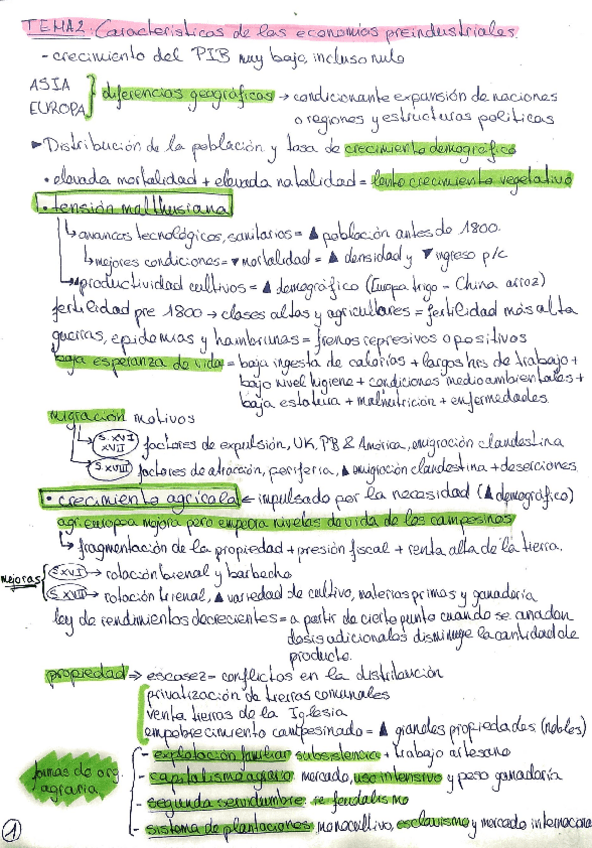 TEMA2: Caracteristicas de las economías preindustriales.
- crecimiento del PIB muy bajo, incluso nulo
ASIA
EUROPA } diferencias geográficas → condicionante expansión de naciones
o regiones y estructuras políticas
► Distribución de la población y tasa de crecimiento demográfico
• elevada mortalidad + elevada natalidad = lento crecimiento vegetativo
• tensión malthusiana
↳ avances tecnológicos, sanitarios = ▲ población antes de 1800.
↳ mejores condiciones = ▼ mortalidad = ▲ densidad y ▼ ingreso p/c
↳ productividad cultivos = ▲ demográfico (Europa trigo - China arroz)
fertilidad pre 1800 → clases altas y agricultores = fertilidad más alta
guerras, epidemias y hambrunas = frenos represivos o positivos
baja esperanza de vida = baja ingesta de calorías + largas hrs de trabajo +
bajo nivel higiene + condiciones medioambientales +
baja estatura + malnutrición + enfermedades.
migración motivos
↳ S. XVI XVII factores de expulsión, UK, PB a América, emigración clandestina
↳ S. XVIII factores de atracción, periferia, ▲ emigración clandestina + deserciones.
• crecimiento agrícola ← impulsado por la necesidad (▲ demográfico)
agri. europea mejora pero empeora niveles de vida de los campesinos
↳ fragmentación de la propiedad + presión fiscal + renta alta de la tierra.
mejoras { S.XVI → rotación bienal y barbecho
S. XVII → rotación trienal, ▲ variedad de cultivo, materias primas y ganadería
ley de rendimientos decrecientes = a partir de cierto punto cuando se añaden
dosis adicionales disminuye la cantidad de
producto.
propiedad ⇒ escasez = conflictos en la distribución
privatización de tierras comunales
venta tierras de la Iglesia
empobrecimiento campesinado = ▲ grandes propiedades (nobles)
formas de org. agraria
- explotación familiar: subsistencia + trabajo artesano
- capitalismo agrario: mercado, uso intensivo y peso ganadería
- segunda servidumbre: re feudalismo
- sistema de plantaciones: monocultivo, esclavismo y mercado internacional
1